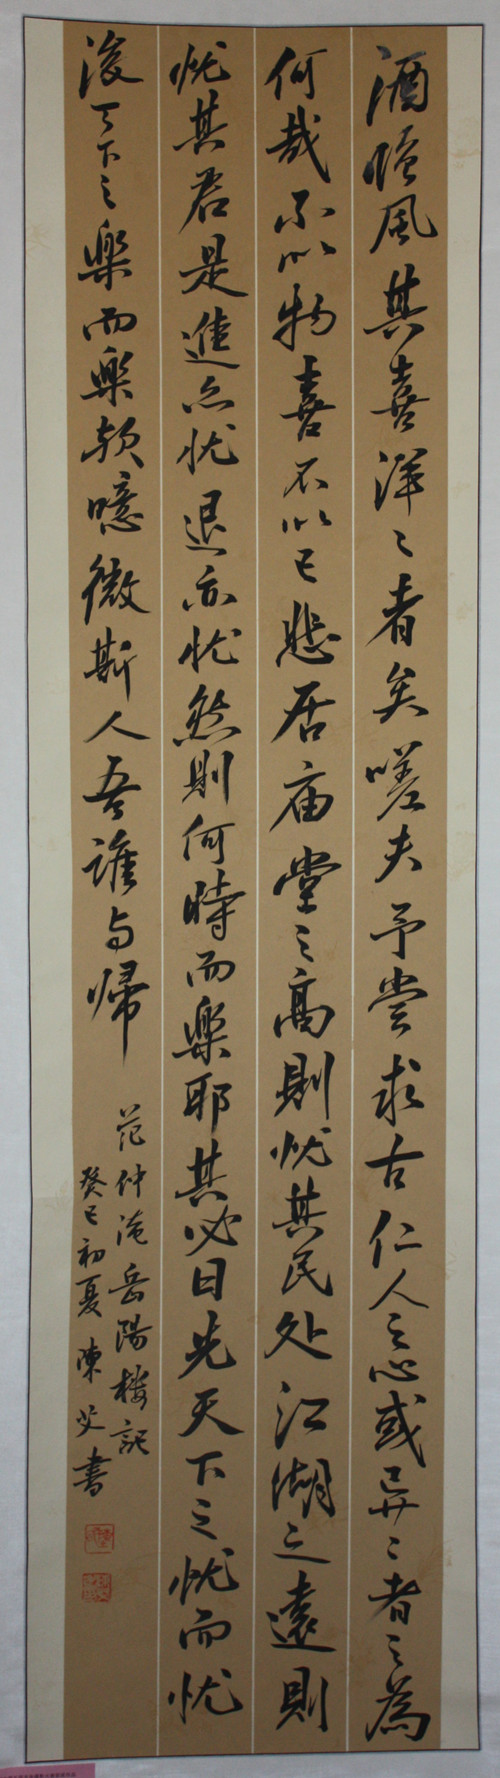 酒临風其喜洋々者矣嗟夫予尝求古仁人之心或异二者之為
何哉不以物喜不以己悲居庙堂之高則忧其民处江湖之遠則
忧其君是進亦忧退亦忧然則何時而楽耶其必曰先天下之忧而忧
後天下之楽而楽欤噫微斯人吾誰与帰
范仲淹岳陽楼記
癸巳初夏陳艾書